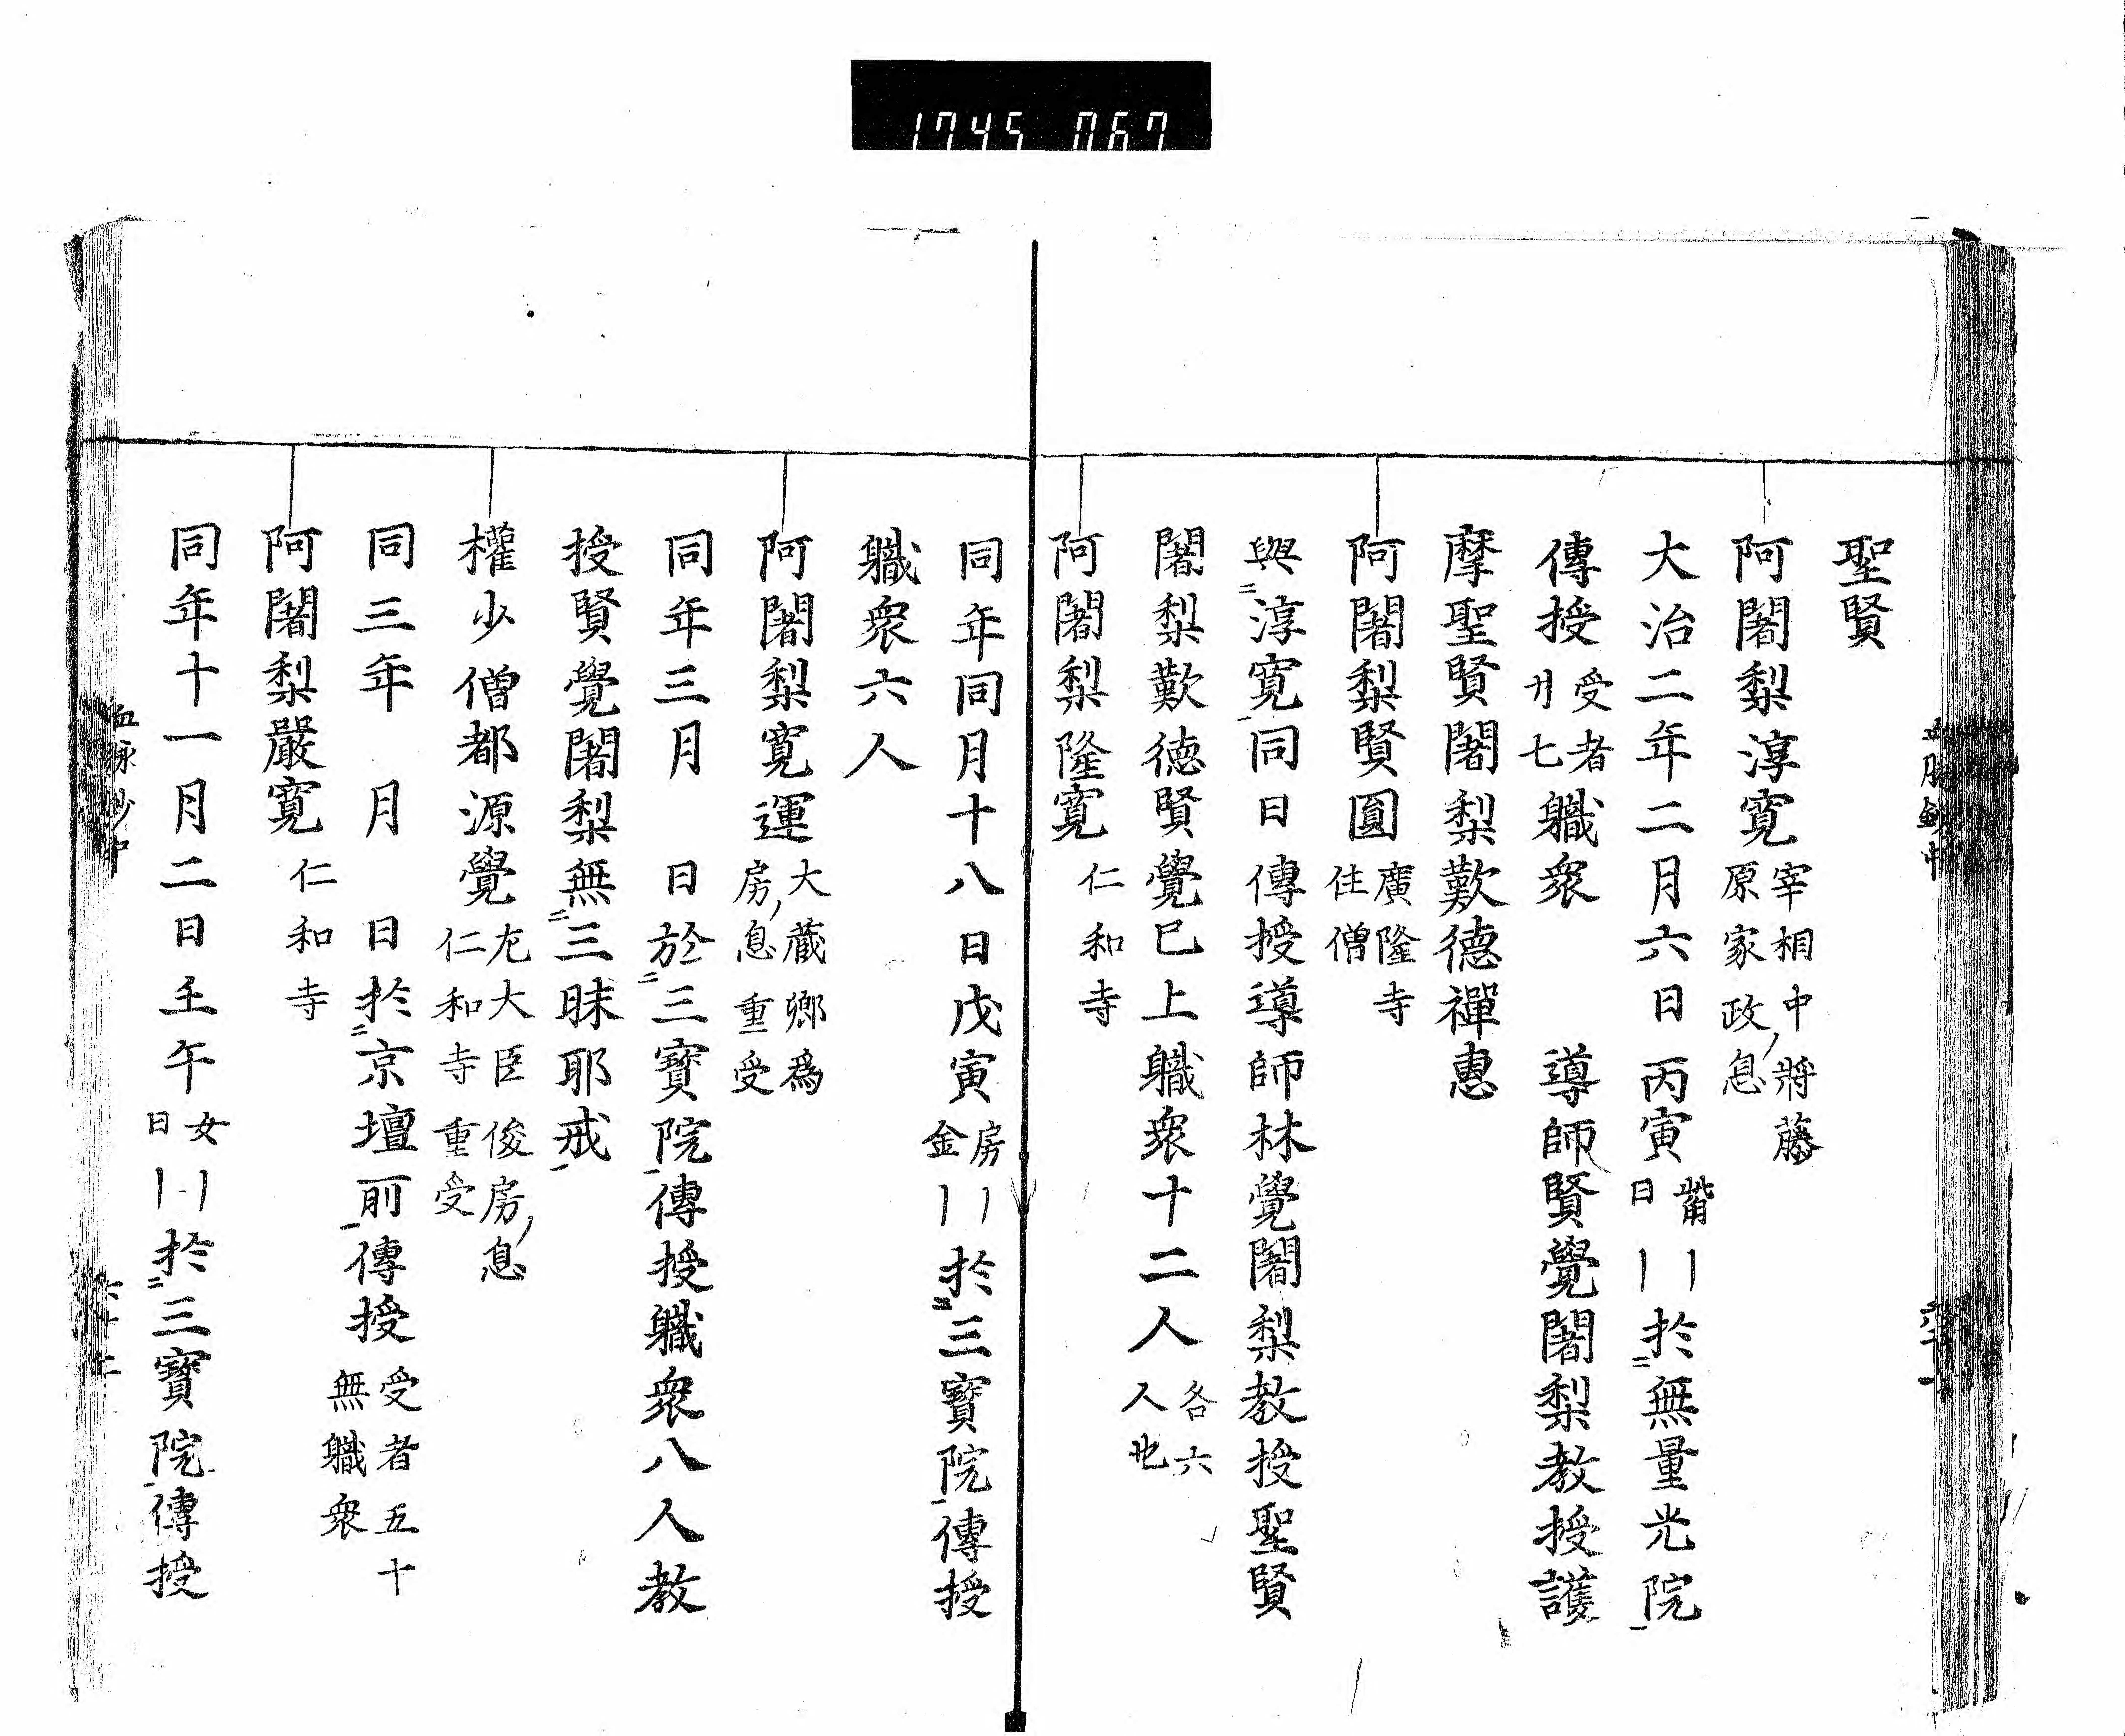 1745 067
聖賢
阿闍梨淳寛 宰相中將藤原家政息
大治二年二月六日丙寅 觜日 〡〡於二無量光院一
傳授 受者廿七 職衆 導師賢覺闍梨教授護
摩聖賢闍梨歎德禪惠
阿闍梨賢圓 廣隆寺住僧
與二淳寛一同日傳授導師林覺闍梨教授聖賢
闍梨歎德賢覺已上職衆十二人 各六人也
阿闍梨隆寛 仁和寺
同年同月十八日戊寅 房金 〡〡於二三寶院一傳授
職衆六人
阿闍梨寛運 大藏卿爲房息 重受
同年三月 日於二三寶院一傳授職衆八人教
授賢覺闍梨無二三昧耶戒一
權少僧都源覺 左大臣俊房息 仁和寺重受
同三年 月 日於二京壇所一傳授 受者五十 無職衆
阿闍梨嚴寛 仁和寺
同年十一月二日壬午 女日 〡〡於二三寶院一傳授
血脉抄中